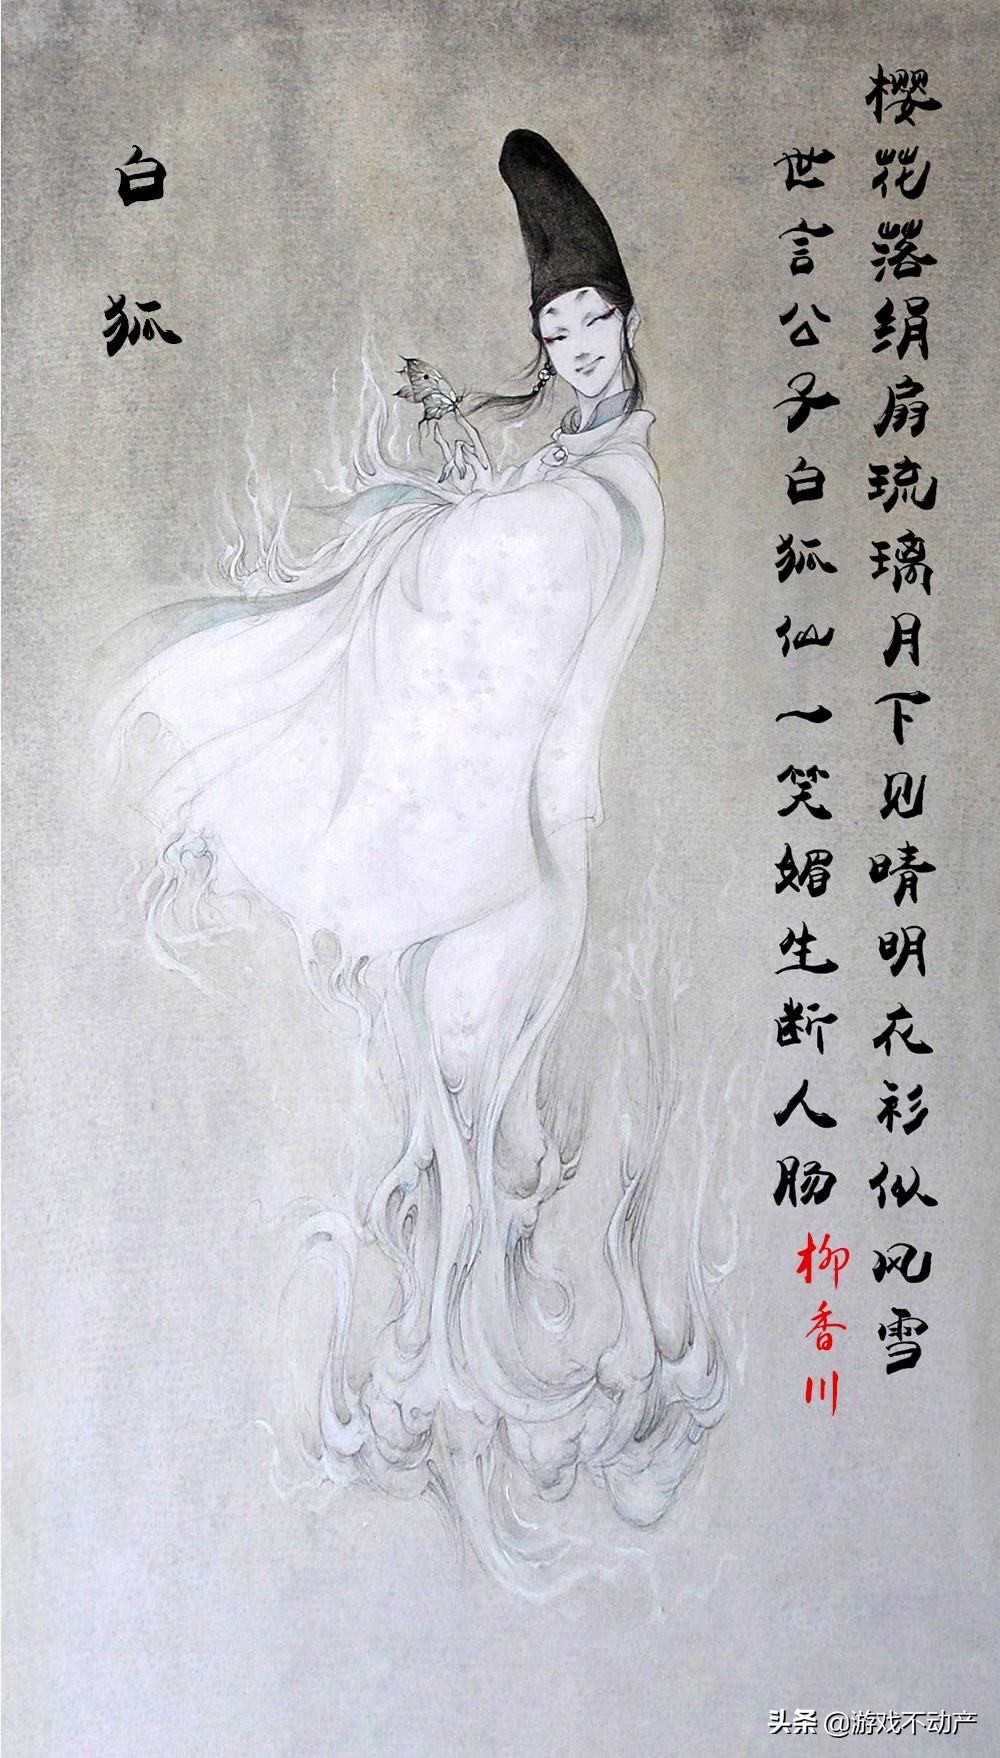 樱花落绢扇琉璃月下见晴明花衫似风雪
世言公子白狐仙一笑媚生断人肠
柳香川
白狐
头条 @游戏不动产